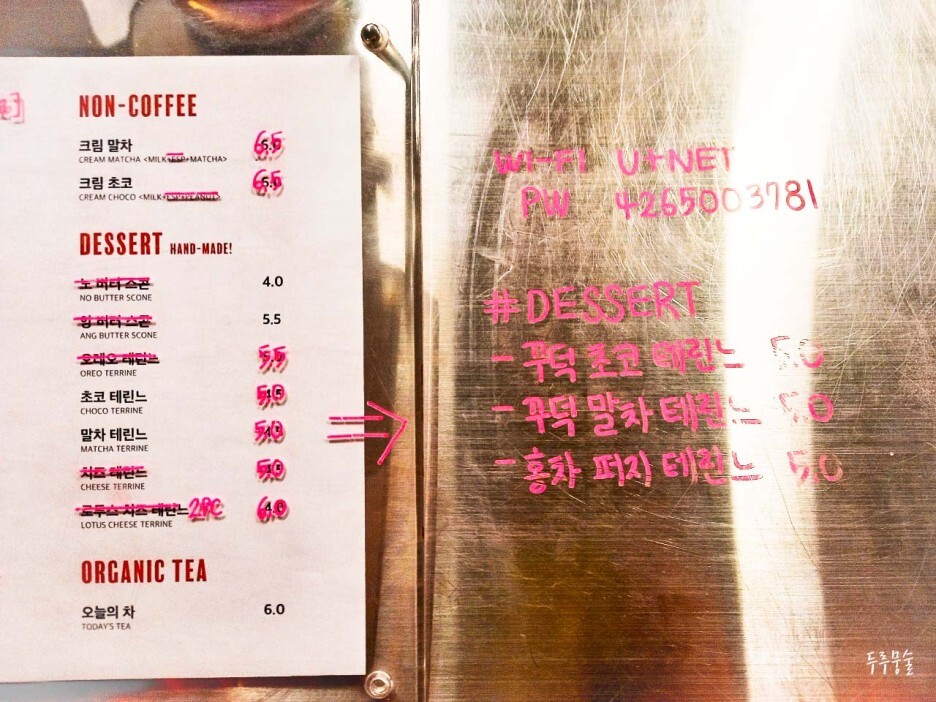 NON-COFFEE
크림 말차 6.5
CREAM MATCHA <MILK+ESP+MATCHA>
크림 초코 6.5
CREAM CHOCO <MILK+ESP+PEANUT>
DESSERT HAND-MADE!
노 버터 스콘 4.0
NO BUTTER SCONE
앙 버터 스콘 5.5
ANG BUTTER SCONE
오레오 테린느 5.5
OREO TERRINE
초코 테린느 5.0
CHOCO TERRINE
말차 테린느 5.0
MATCHA TERRINE
치즈 테린느 5.0
CHEESE TERRINE
로투스 치즈 테린느 2PC 6.0
LOTUS CHEESE TERRINE
ORGANIC TEA
오늘의 차 6.0
TODAY'S TEA
WI-FI U+NET
PW 4265003781
#DESSERT
- 꾸덕 초코 테린느 5.0
- 꾸덕 말차 테린느 5.0
- 홍차 퍼지 테린느 5.0
두루뭉술